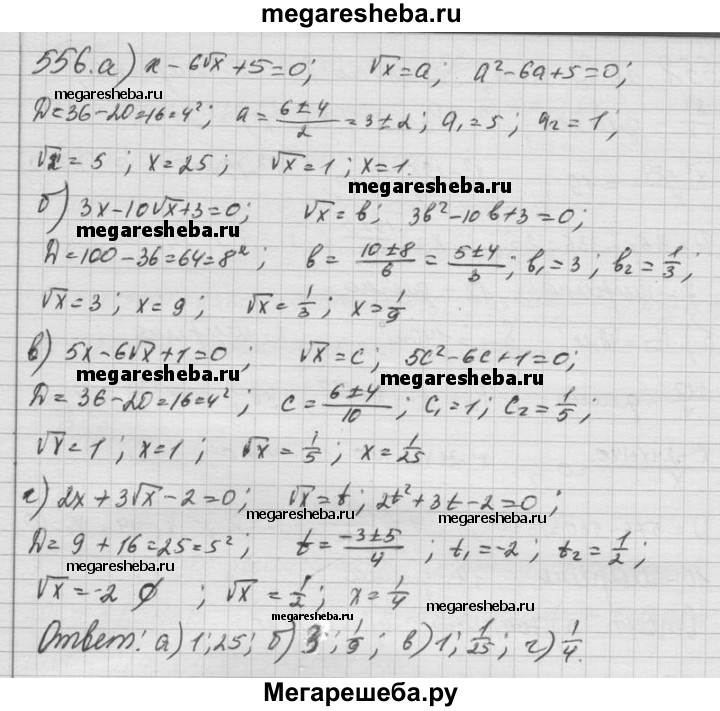 megaresheba.ru
556.а) x - 6√x + 5 = 0; √x = a; a² - 6a + 5 = 0;
megaresheba.ru
D = 36 - 20 = 16 = 4²; a = (6 ± 4)/2 = 3 ± 2; a₁ = 5; a₂ = 1;
√x = 5; x = 25; √x = 1; x = 1.
megaresheba.ru
б) 3x - 10√x + 3 = 0; √x = b; 3b² - 10b + 3 = 0;
megaresheba.ru
D = 100 - 36 = 64 = 8²; b = (10 ± 8)/6 = (5 ± 4)/3; b₁ = 3; b₂ = 1/3;
√x = 3; x = 9; √x = 1/3; x = 1/9
в) 5x - 6√x + 1 = 0; √x = c; 5c² - 6c + 1 = 0;
megaresheba.ru megaresheba.ru
D = 36 - 20 = 16 = 4²; c = (6 ± 4)/10; c₁ = 1; c₂ = 1/5;
√x = 1; x = 1; √x = 1/5; x = 1/25
г) 2x + 3√x - 2 = 0; √x = t; 2t² + 3t - 2 = 0;
megaresheba.ru megaresheba.ru
D = 9 + 16 = 25 = 5²; t = (-3 ± 5)/4; t₁ = -2; t₂ = 1/2;
megaresheba.ru
√x = -2 ∅; √x = 1/2; x = 1/4
megaresheba.ru megaresheba.ru
Ответ: а) 1; 25; б) 3; 1/9; в) 1; 1/25; г) 1/4.
Мегарешеба.ру